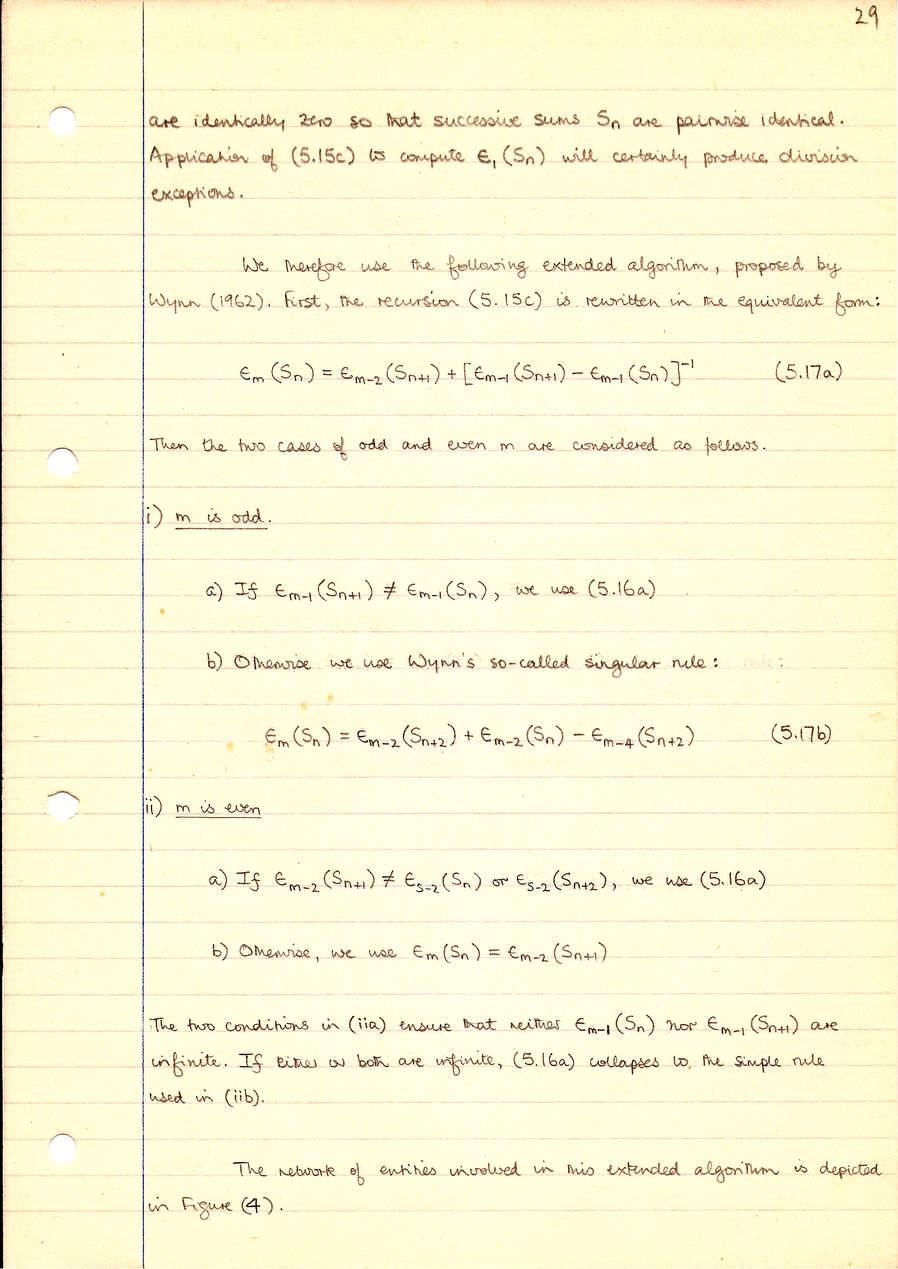 29
are identically zero so that successive sums Sₙ are pairwise identical.
Application of (5.15c) to compute ϵ₁(Sₙ) will certainly produce division
exceptions.
We therefore use the following extended algorithm, proposed by
Wynn (1962). First, the recursion (5.15c) is rewritten in the equivalent form:
ϵₘ(Sₙ) = ϵₘ₋₂(Sₙ₊₁) + [ϵₘ₋₁(Sₙ₊₁) − ϵₘ₋₁(Sₙ)]⁻¹ (5.17a)
Then the two cases of odd and even m are considered as follows.
i) m is odd.
a) If ϵₘ₋₁(Sₙ₊₁) ≠ ϵₘ₋₁(Sₙ), we use (5.16a)
b) Otherwise we use Wynn's so-called singular rule:
ϵₘ(Sₙ) = ϵₘ₋₂(Sₙ₊₂) + ϵₘ₋₂(Sₙ) − ϵₘ₋₄(Sₙ₊₂) (5.17b)
ii) m is even
a) If ϵₘ₋₂(Sₙ₊₁) ≠ ϵₛ₋₂(Sₙ) or ϵₛ₋₂(Sₙ₊₂), we use (5.16a)
b) Otherwise, we use ϵₘ(Sₙ) = ϵₘ₋₂(Sₙ₊₁)
The two conditions in (iia) ensure that neither ϵₘ₋₁(Sₙ) nor ϵₘ₋₁(Sₙ₊₁) are
infinite. If either or both are infinite, (5.16a) collapses to the simple rule
used in (iib).
The network of entities involved in this extended algorithm is depicted
in Figure (4).